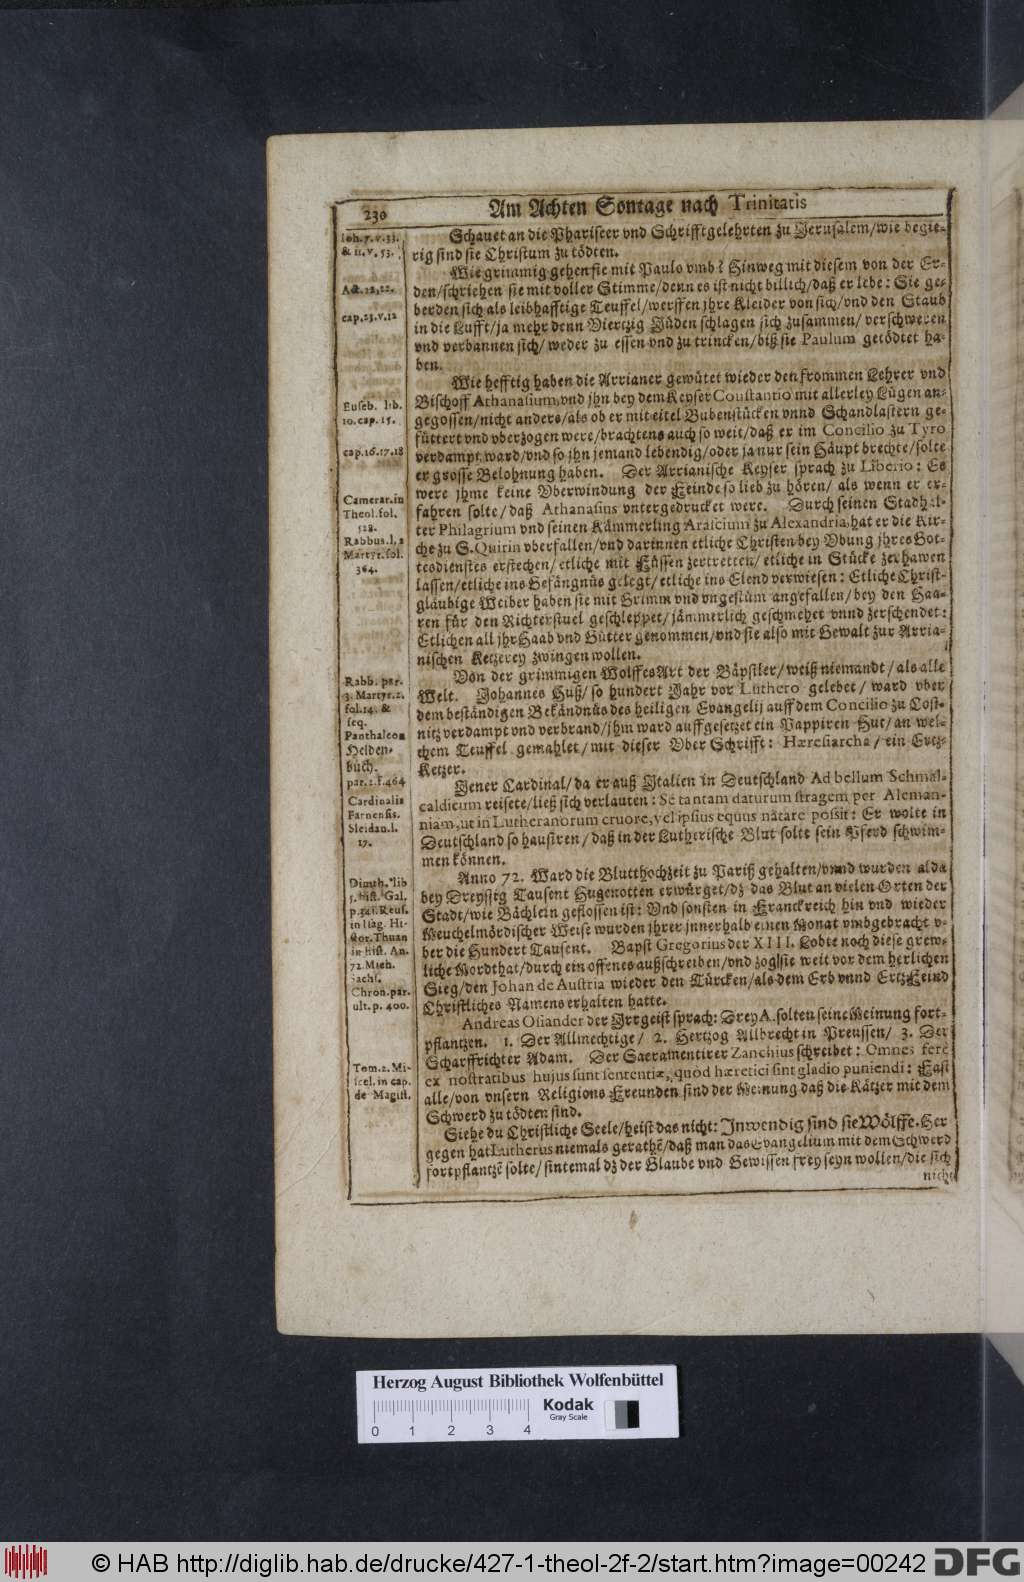 230
Am Achten Sontage nach Trinitatis
Ioh. 7. v. 33.
& 11. v. 53.
Act. 22, 22.
cap. 23. v. 12
Euseb. lib.
10. cap. 15.
cap. 16. 17. 18
Camerar. in
Theol. fol.
528.
Rabbus. l. 2
Martyr. fol.
364.
Rabb. par.
3. Martyr. 2.
fol. 14. &
seq.
Panthaleon
Helden-
buch.
par. 2. f. 464
Cardinalis
Farnensis.
Sleidan. l.
17.
Dinoth. lib
5. hist. Gal.
p. 341. Reus.
in Hag. Hi-
stor. Thuan
in hist. An.
72. Mich.
Sachs.
Chron. par.
ult. p. 400.
Tom. 2. Mi-
scel. in cap.
de Magist.
Schauet an die Phariseer vnd Schrifftgelehrten zu Jerusalem/ wie begie-
rig sind sie Christum zu tödten.
Wie grimmig gehen sie mit Paulo vmb? Hinweg mit diesem von der Er-
den/ schriehen sie mit voller Stimme/ denn es ist nicht billich/ daß er lebe: Sie ge-
berden sich als leibhafftige Teuffel/ werffen jhre Kleider von sich/ vnd den Staub
in die Lufft/ ja mehr denn Viertzig Jüden schlagen sich zusammen/ verschweren
vnd verbannen sich/ weder zu essen vnd zu trincken/ biß sie Paulum getödtet ha-
ben.
Wie hefftig haben die Arrianer gewütet wieder den frommen Lehrer vnd
Bischoff Athanasium, vnd jhn bey dem Keyser Constantio mit allerley Lügen an-
gegossen/ nicht anders/ als ob er mit eitel Bubenstücken vnnd Schandlastern ge-
füttert vnd vberzogen were/ brachtens auch so weit/ daß er im Concilio zu Tyro
verdampt ward/ vnd so jhn jemand lebendig/ oder ja nur sein Häupt brechte/ solte
er grosse Belohnung haben. Der Arrianische Keyser sprach zu Liberio: Es
were jhme keine Vberwindung der Feinde so lieb zu hören/ als wenn er er-
fahren solte/ daß Athanasius vntergedrucket were. Durch seinen Stadhal-
ter Philagrium vnd seinen Kämmerling Arascium zu Alexandria, hat er die Kir-
che zu S. Quirin vberfallen/ vnd darinnen etliche Christen bey Vbung jhres Got-
tesdienstes erstechen/ etliche mit Füssen zertretten/ etliche in Stücke zerhawen
lassen/ etliche ins Gefängnüs gelegt/ etliche ins Elend verwiesen: Etliche Christ-
gläubige Weiber haben sie mit Grimm vnd vngestüm angefallen/ bey den Haa-
ren für den Richterstuel geschleppet/ jämmerlich geschmehet vnnd zerschendet:
Etlichen all jhr Haab vnd Gütter genommen/ vnd sie also mit Gewalt zur Arria-
nischen Ketzerey zwingen wollen.
Von der grimmigen Wolffes Art der Bäpstler/ weiß niemandt/ als alle
Welt. Johannes Huß/ so hundert Jahr vor Luthero gelebet/ ward vber
dem beständigen Bekändnüs des heiligen Evangelij auff dem Concilio zu Cost-
nitz verdampt vnd verbrand/ jhm ward auffgesetzet ein Pappiren Hut/ an wel-
chem Teuffel gemahlet/ mit dieser Vber Schrifft: Hæresiarcha/ ein Ertz-
Ketzer.
Jener Cardinal/ da er auß Italien in Deutschland Ad bellum Schmal-
caldicum reisete/ ließ sich verlauten: Se tantam daturum stragem per Aleman-
niam, ut in Lutheranorum cruore, vel ipsius equus natare possit: Er wolte in
Deutschland so hausiren/ daß in der Lutherische Blut solte sein Pferd schwim-
men können.
Anno 72. Ward die Blutthochzeit zu Pariß gehalten/ vnnd wurden alda
bey Dreyssig Tausent Hugenotten erwürget/ dz das Blut an vielen Orten der
Stadt/ wie Bächlein geflossen ist: Vnd sonsten in Franckreich hin vnd wieder
Meuchelmördischer Weise wurden jhrer innerhalb einen Monat vmbgebracht v-
ber die Hundert Tausent. Bapst Gregorius der XIII. Lobte noch diese grew-
liche Mordthat/ durch ein offenes außschreiben/ vnd zog sie weit vor dem herlichen
Sieg/ den Johan de Austria wieder den Türcken/ als dem Erb vnnd Ertz Feind
Christliches Namens erhalten hatte.
Andreas Osiander der Irrgeist sprach: Drey A. solten seine Meinung fort-
pflantzen. 1. Der Allmechtige/ 2. Hertzog Albrecht in Preussen/ 3. Der
Scharffrichter Adam. Der Sacramentirer Zanchius schreibet: Omnes ferè
ex nostratibus hujus sunt sententiæ, quod hæretici sint gladio puniendi: Fast
alle/ von vnsern Religions Freunden sind der Meinung daß die Kätzer mit dem
Schwerd zu tödten sind.
Siehe du Christliche Seele/ heist das nicht: Inwendig sind sie Wölffe. Her
gegen hat Lutherus niemals gerathẽ/ daß man das Evangelium mit dem Schwerd
fortpflantzẽ solte/ sintemal dz der Glaube vnd Gewissen frey seyn wollen/ die sich
nicht
Herzog August Bibliothek Wolfenbüttel
0 1 2 3 4
Kodak
Gray Scale
© HAB http://diglib.hab.de/drucke/427-1-theol-2f-2/start.htm?image=00242
DFG